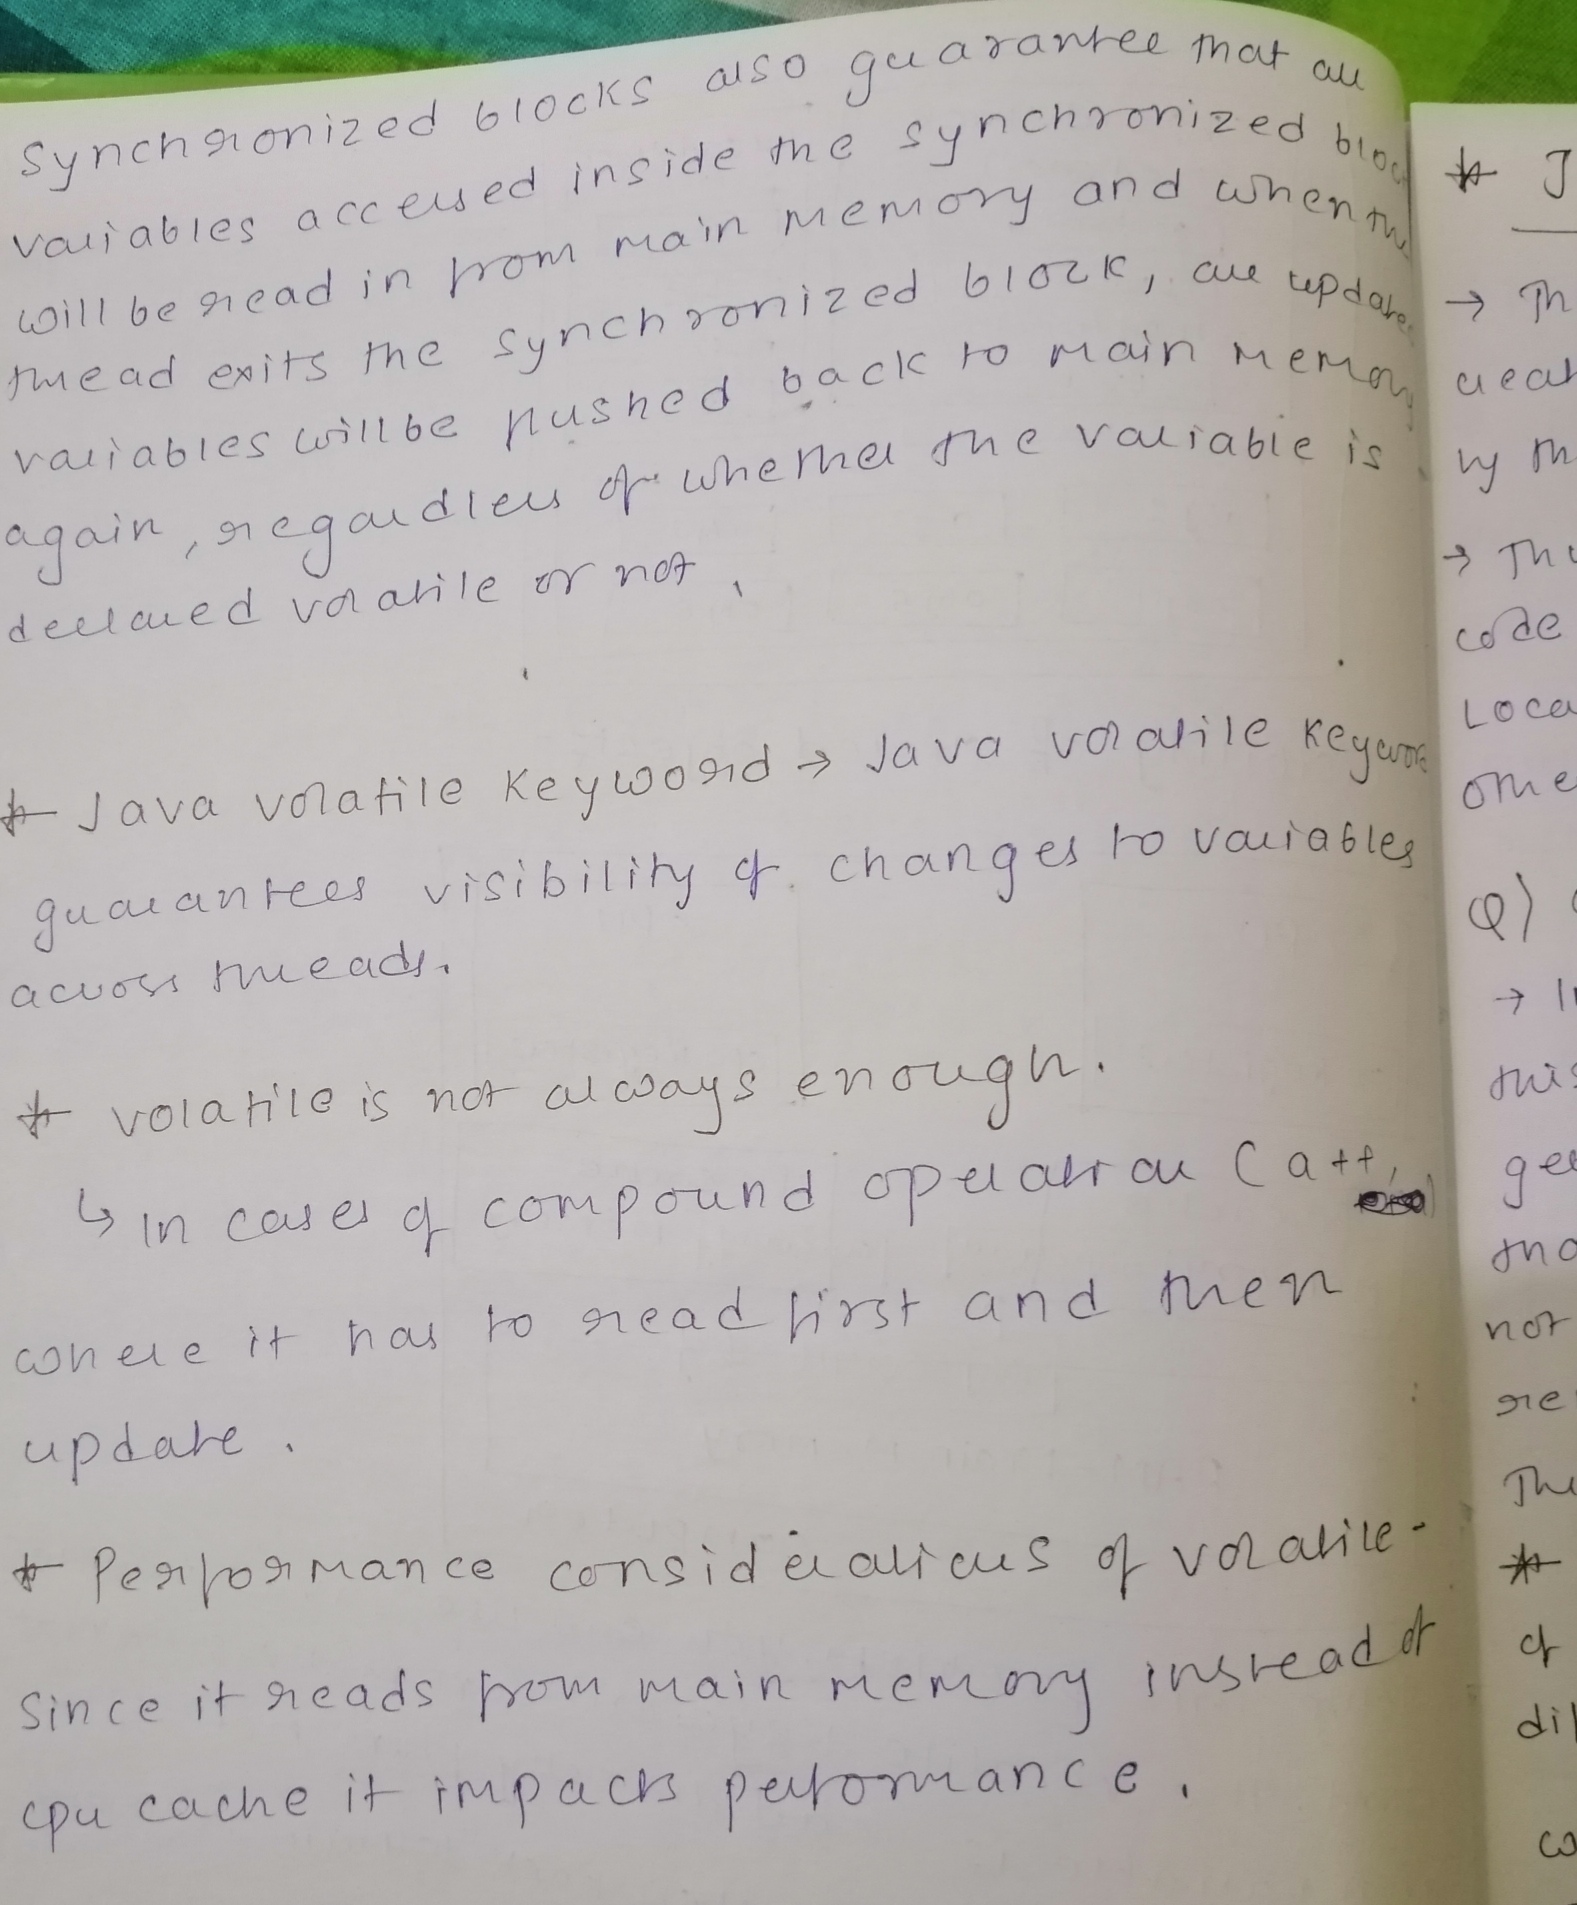 Synchronized blocks also guarantee that all
variables accessed inside the synchronized bloc
will be read in from main memory and when the
thread exits the synchronized block, all update
variables will be flushed back to main memory
again, regardless of whether the variable is
declared volatile or not.
* Java volatile keyword → Java volatile keywor
guarantees visibility of changes to variables
across threads.
* volatile is not always enough.
↳ In cases of compound operation (a++,
where it has to read first and then
update.
* Performance considerations of volatile -
Since it reads from main memory instead of
cpu cache it impacts performance.
* J
→ Th
by th
→ Th
code
Loca
othe
Q)
→ I
this
ge
tha
not
re
The
*
of
dif
co